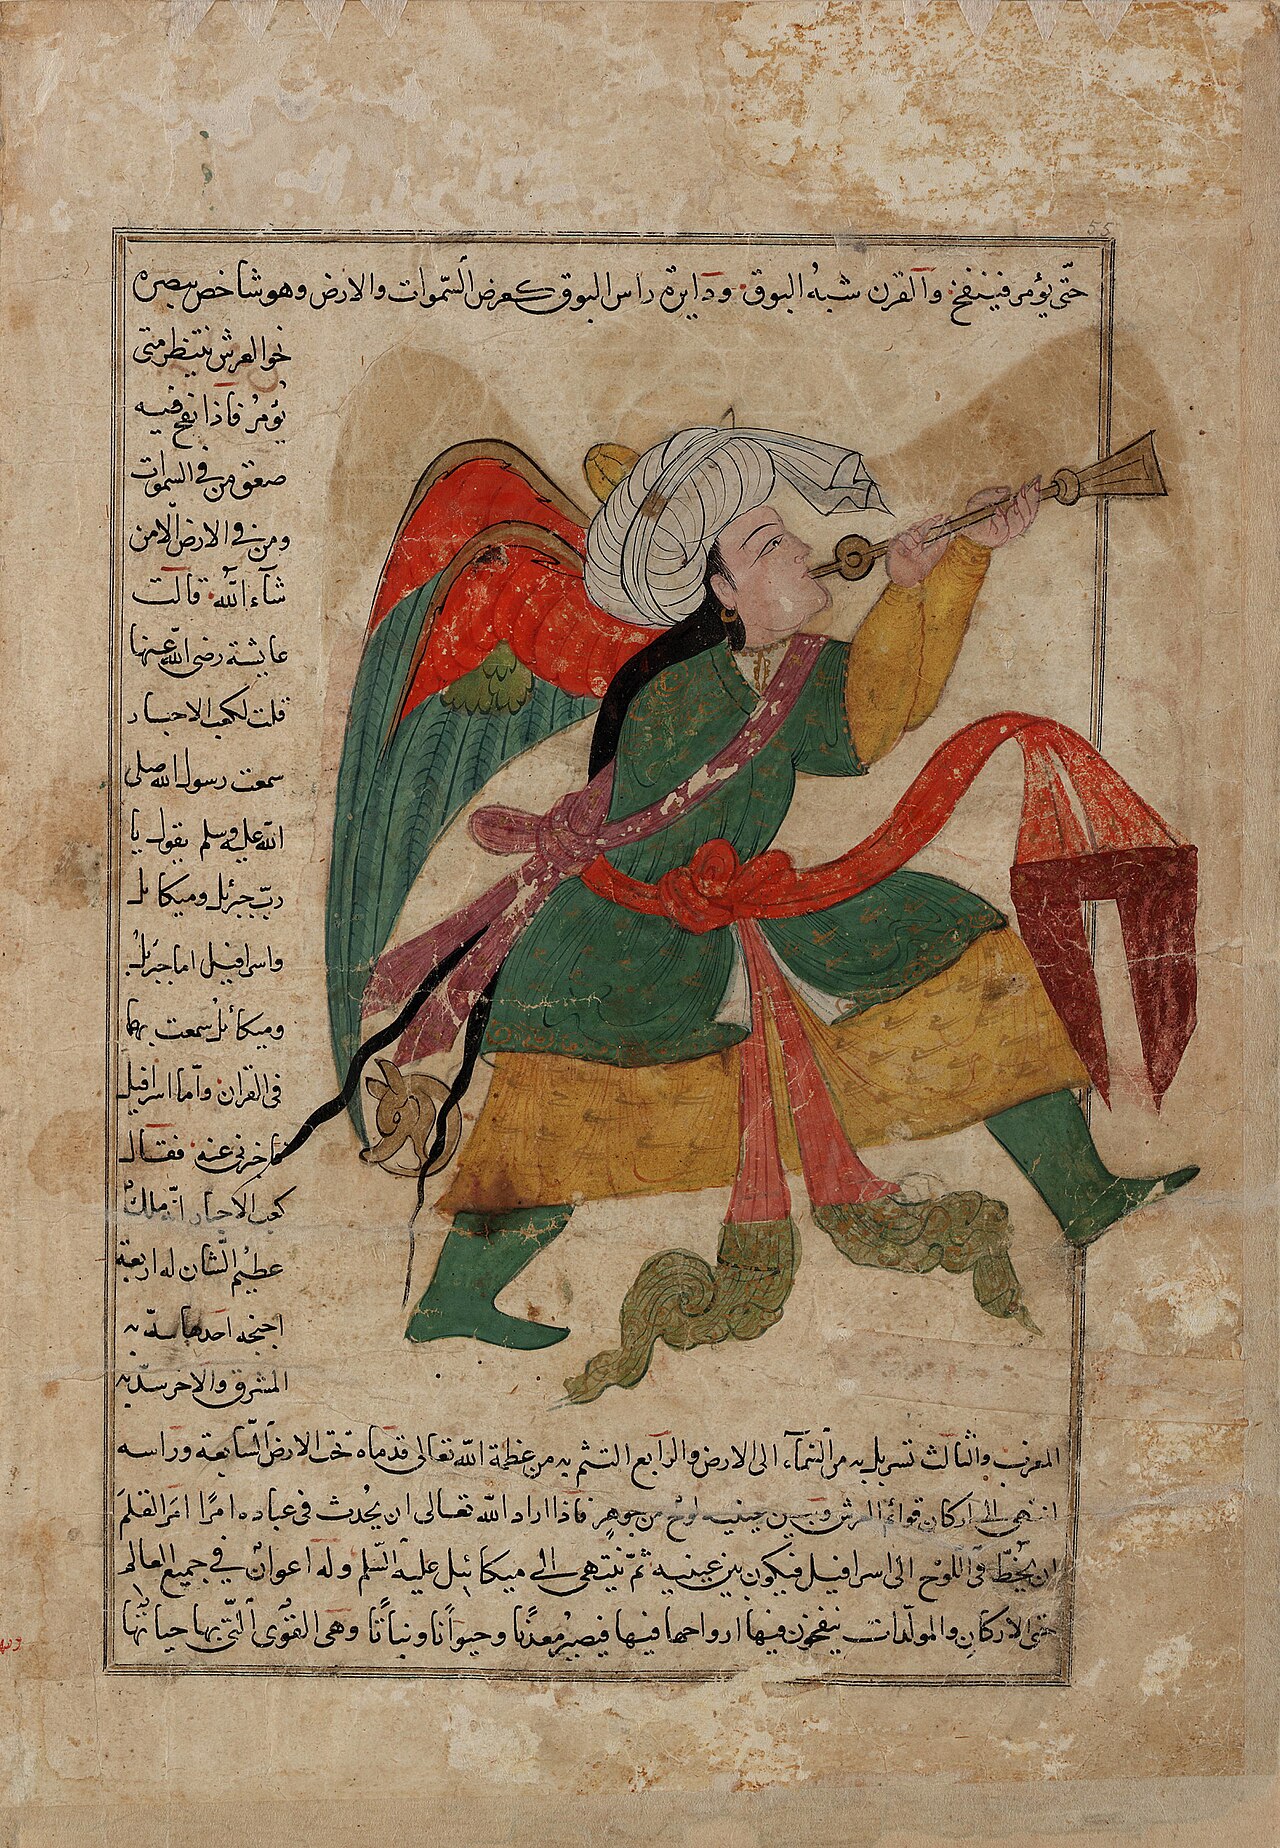 حتّى يؤمر فينفخ والقرن شبهُ البوق ودايرة راس البوق كعرض السّموات والارض وهو شاخص ببصره
نحو العرش ينتظر متى
يُؤمرُ فاذا نفخ فيه
صعق من فى السموات
ومن فى الارض الّا من
شآء اللّٰه قالت
عايشة رضى اللّٰه عنها
قلت لكعب الاحبار
سمعت رسول اللّٰه صلى
اللّٰه عليه وسلم يقول يا
ربّ جبرئل وميكايل
واسرافيل اما جبرئل
وميكائل سمعت بهما
فى القران وامّا اسرافيل
فاخبرنى عنه فقال
كعب الاحبار انّه ملكٌ
عظيم الشّان له اربعة
اجنحة احدها سدّ به
المشرق والاخر سدّ به
المغرب والثالث تسربل به من السّمآء الى الارض والرابع التثم به من عظمة اللّٰه تعالى قدماه تحت الارض السّابعة وراسه
انتهى الى اركان قوائم العرش وبين عينيه لوح من جوهر فاذا اراد اللّٰه تعالى ان يُحدث فى عباده امرًا امَر القلمَ
ان يخُطّ فى اللّوح الى اسرافيل فيكون بين عينيه ثمّ ينتهى الى ميكائيل عليه السّلم وله اعوانٌ فى جميع العالم
حتى الاركان والمولّدات ينفخون فيها ارواحها فيها فيصيرُ معدنًا وحيوانًا ونباتًا وهى القُوى الّتى بها حياتُها
55